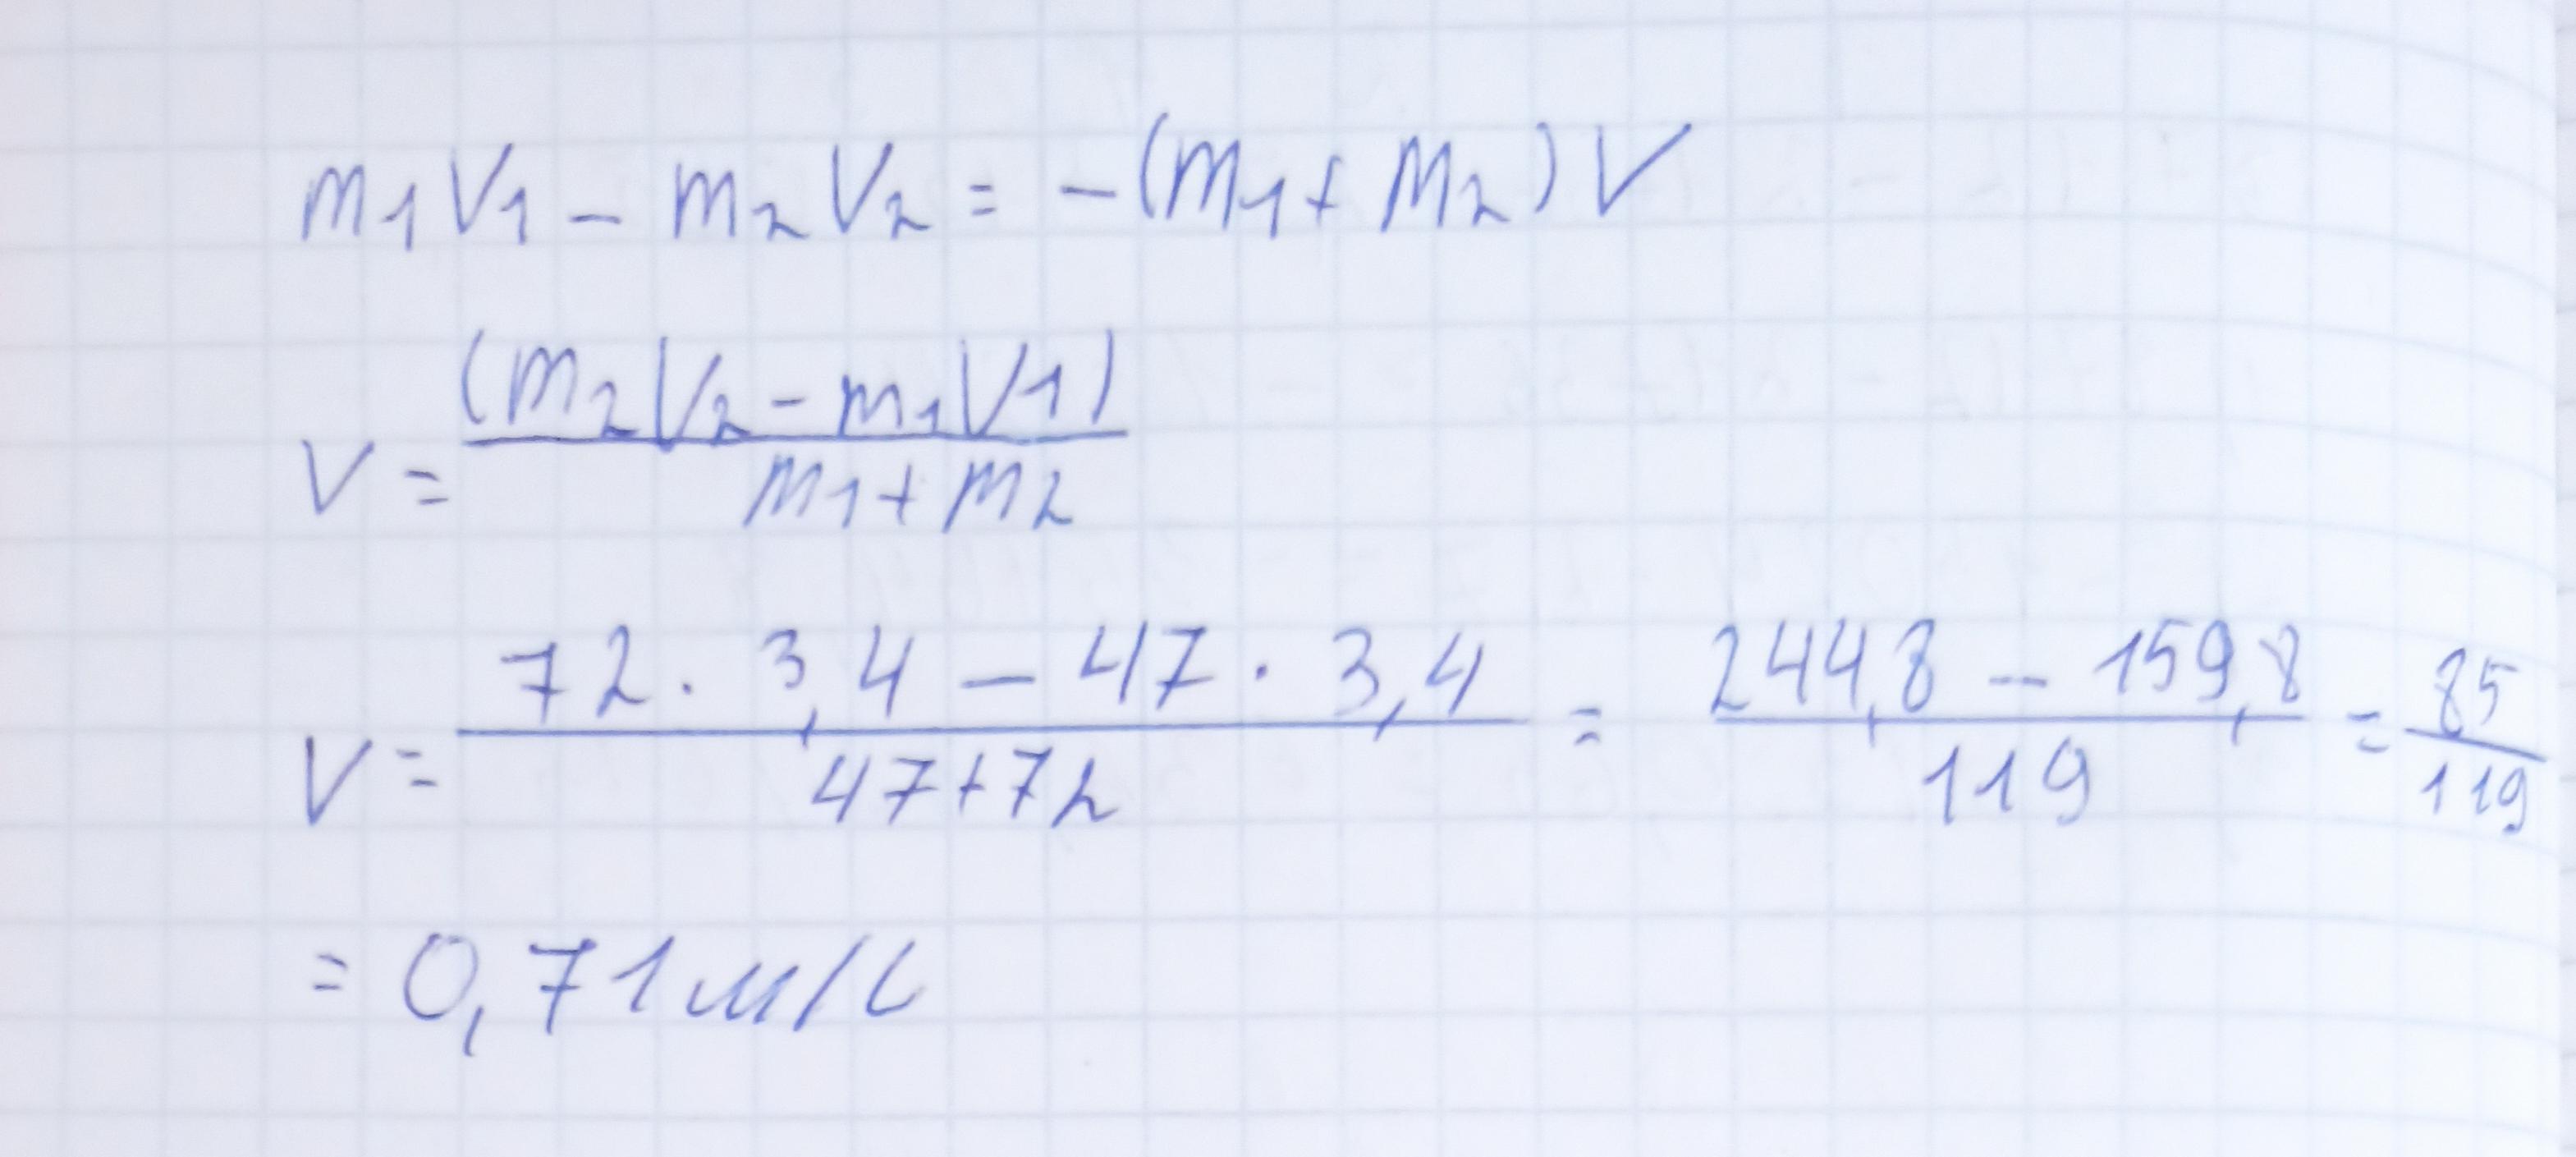 m₁V₁ - m₂V₂ = -(m₁ + m₂)V
V = (m₂V₂ - m₁V₁) / m₁ + m₂
V = 72 · 3,4 - 47 · 3,4 / 47+72 = 244,8 - 159,8 / 119 = 85 / 119
= 0,71 м/с